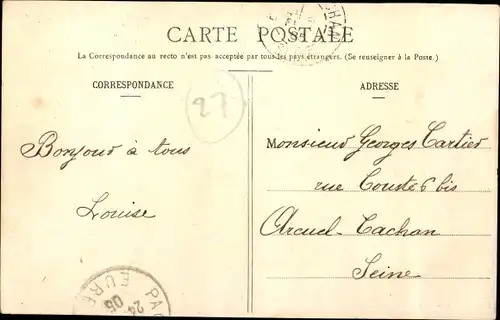 CARTE POSTALE
La Correspondance au recto n'est pas acceptée par tous les pays étrangers. (Se renseigner à la Poste.)
CORRESPONDANCE
ADRESSE
27
Bonjour à tous
Louise
Monsieur Georges Cartier
rue 6 bis
Arcueil-Cachan
Seine
PAC
EURE
24